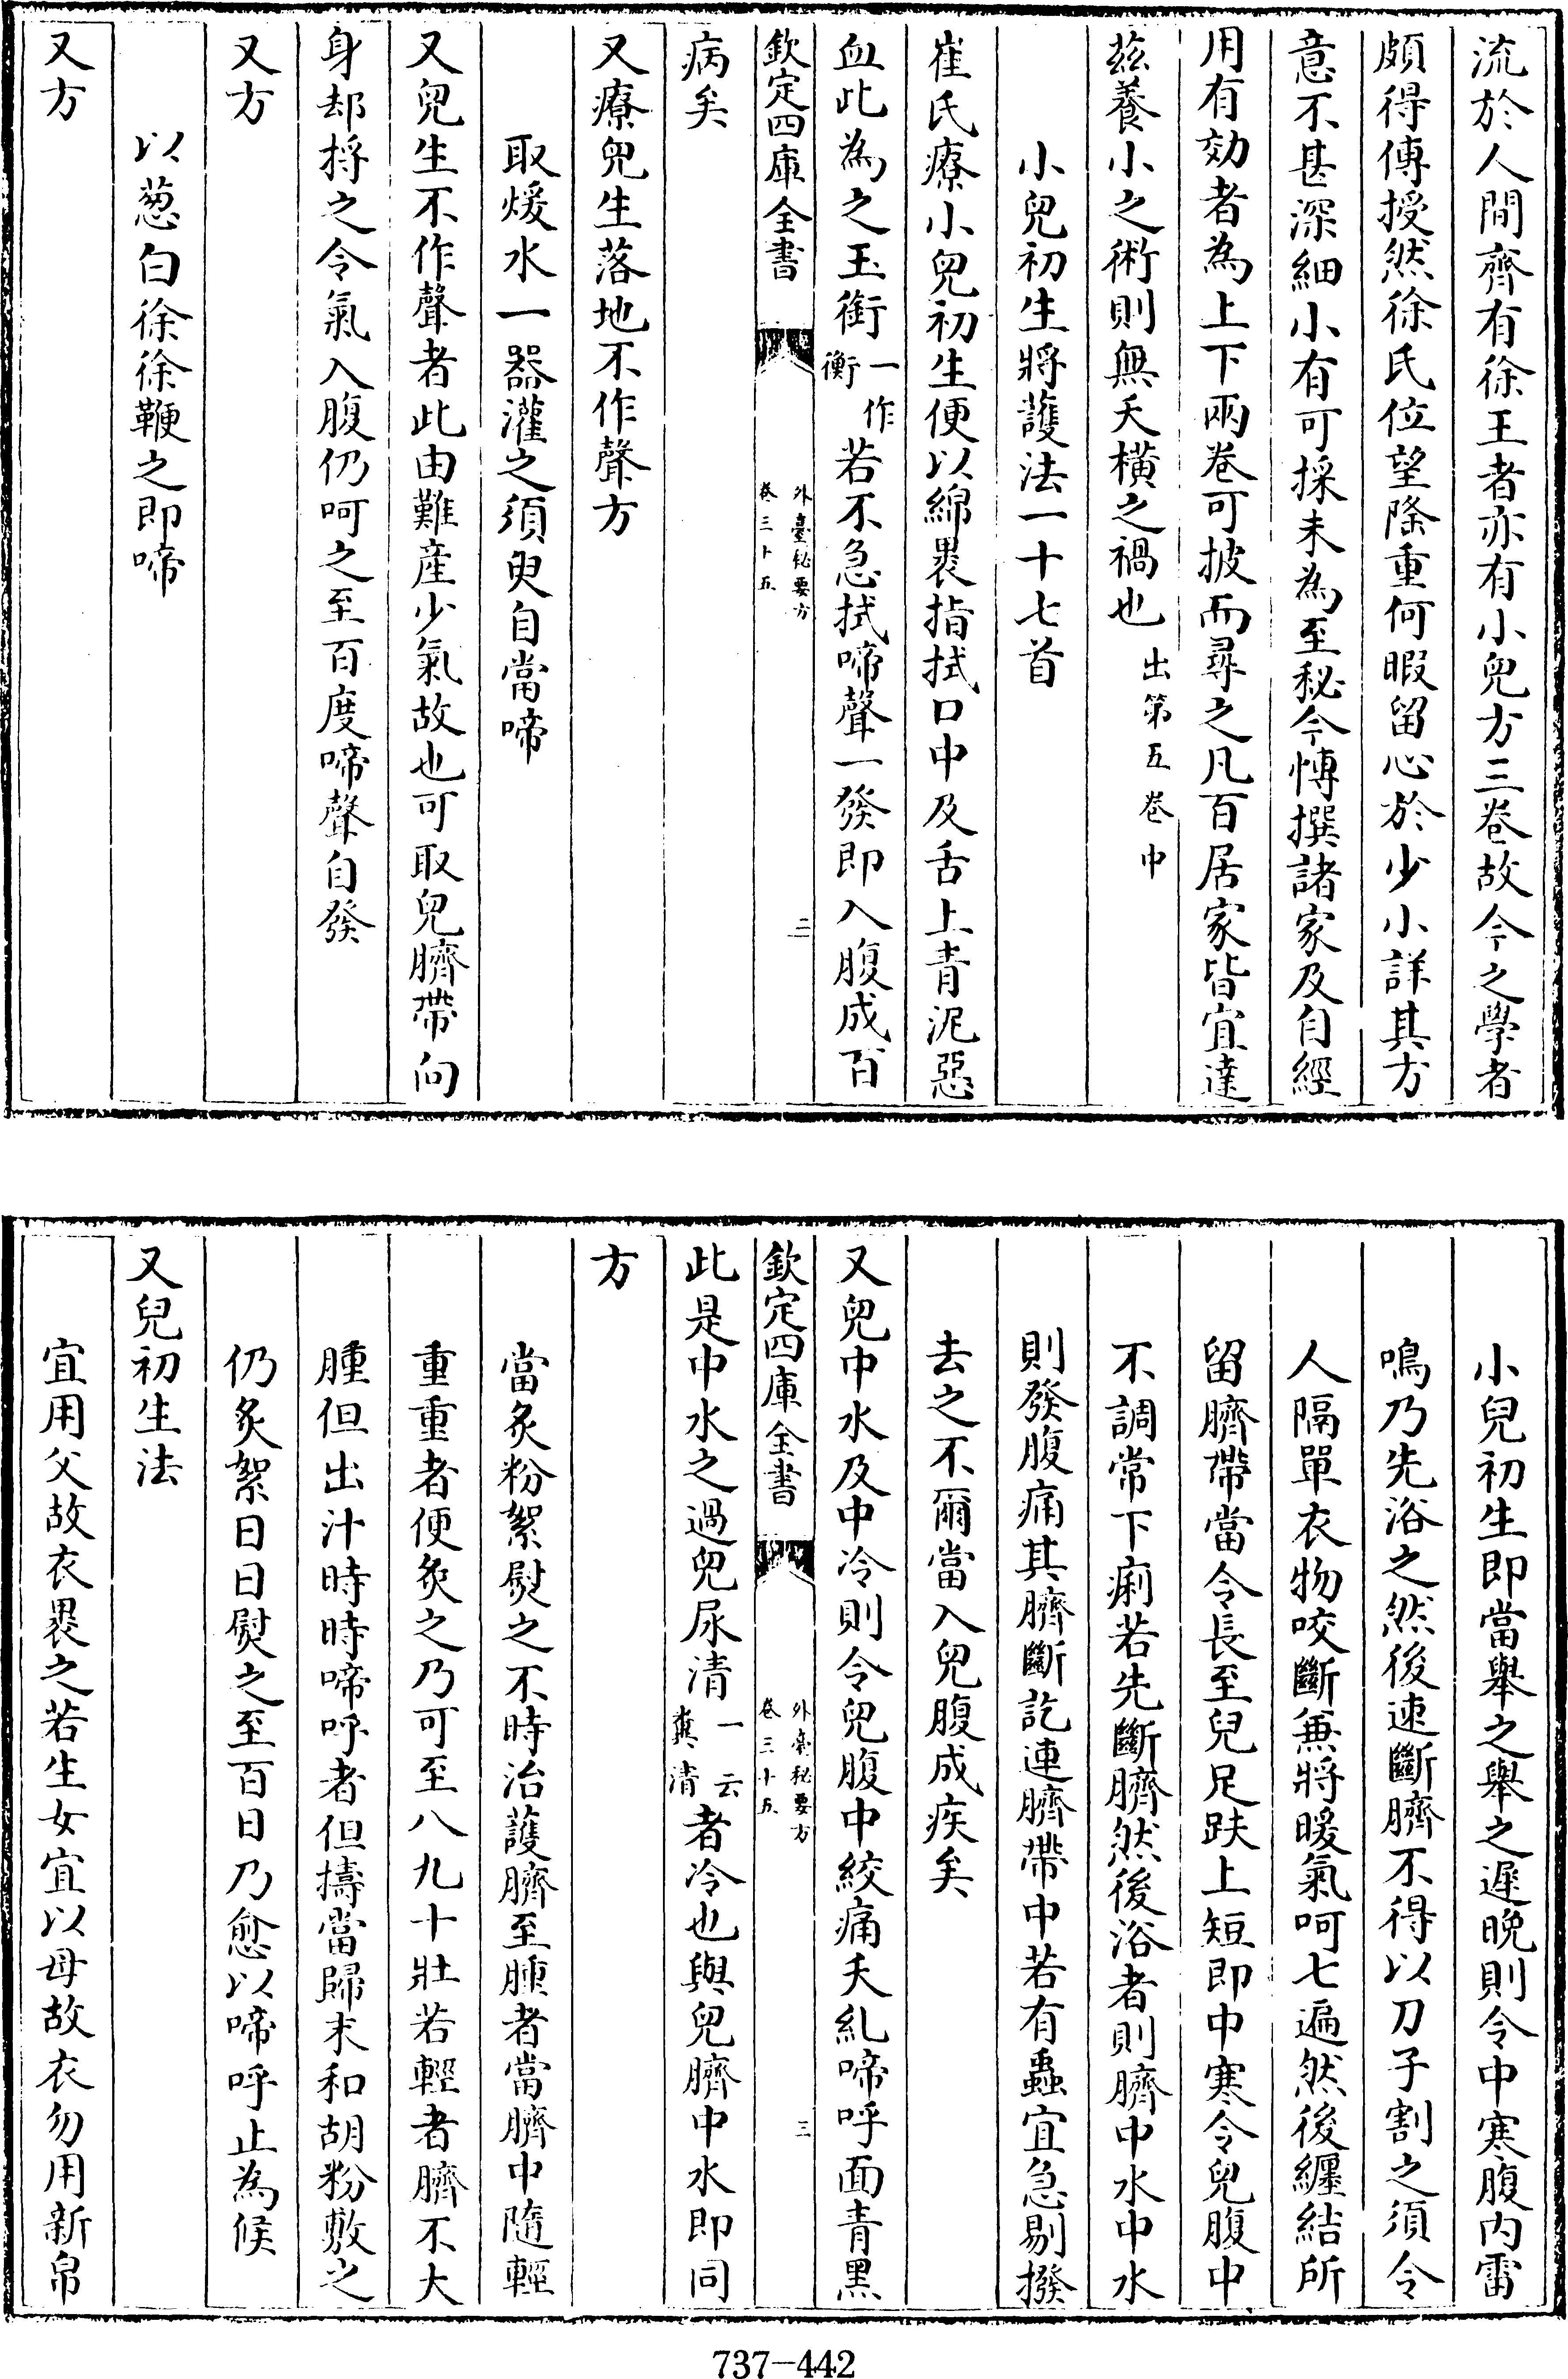 流於人間齊有徐王者亦有小兒方三卷故今之學者
頗得傳授然徐氏位望隆重何暇留心於少小詳其方
意不甚深細小有可採未為至秘今博撰諸家及自經
用有効者為上下兩卷可披而尋之凡百居家皆宜達
茲養小之術則無夭橫之禍也出第五卷中
小兒初生將護法一十七首
崔氏療小兒初生便以綿褁指拭口中及舌上青泥惡
血此為之玉銜一作衡若不急拭啼聲一發即入腹成百
欽定四庫全書 外臺秘要方卷三十五 二
病矣
又療兒生落地不作聲方
取煖水一器灌之須臾自當啼
又兒生不作聲者此由難產少氣故也可取兒臍帶向
身却捋之令氣入腹仍呵之至百度啼聲自發
又方
以葱白徐徐鞭之即啼
又方
小兒初生即當舉之舉之遲晚則令中寒腹內雷
鳴乃先浴之然後速斷臍不得以刀子割之須令
人隔單衣物咬斷兼將暖氣呵七遍然後纒結所
留臍帶當令長至兒足趺上短即中寒令兒腹中
不調常下痢若先斷臍然後浴者則臍中水中水
則發腹痛其臍斷訖連臍帶中若有蟲宜急剔撥
去之不爾當入兒腹成疾矣
又兒中水及中冷則令兒腹中絞痛夭糺啼呼面青黑
欽定四庫全書 外臺秘要方卷三十五 三
此是中水之過兒尿清一云糞清者冷也與兒臍中水即同
方
當炙粉絮熨之不時治護臍至腫者當臍中隨輕
重重者便炙之乃可至八九十壯若輕者臍不大
腫但出汁時時啼呼者但擣當歸末和胡粉敷之
仍炙絮日日熨之至百日乃愈以啼呼止為候
又兒初生法
宜用父故衣褁之若生女宜以母故衣勿用新帛
737-442